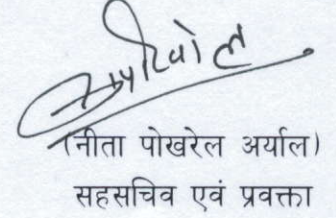 (नीता पोखरेल अर्याल)
सहसचिव एवं प्रवक्ता